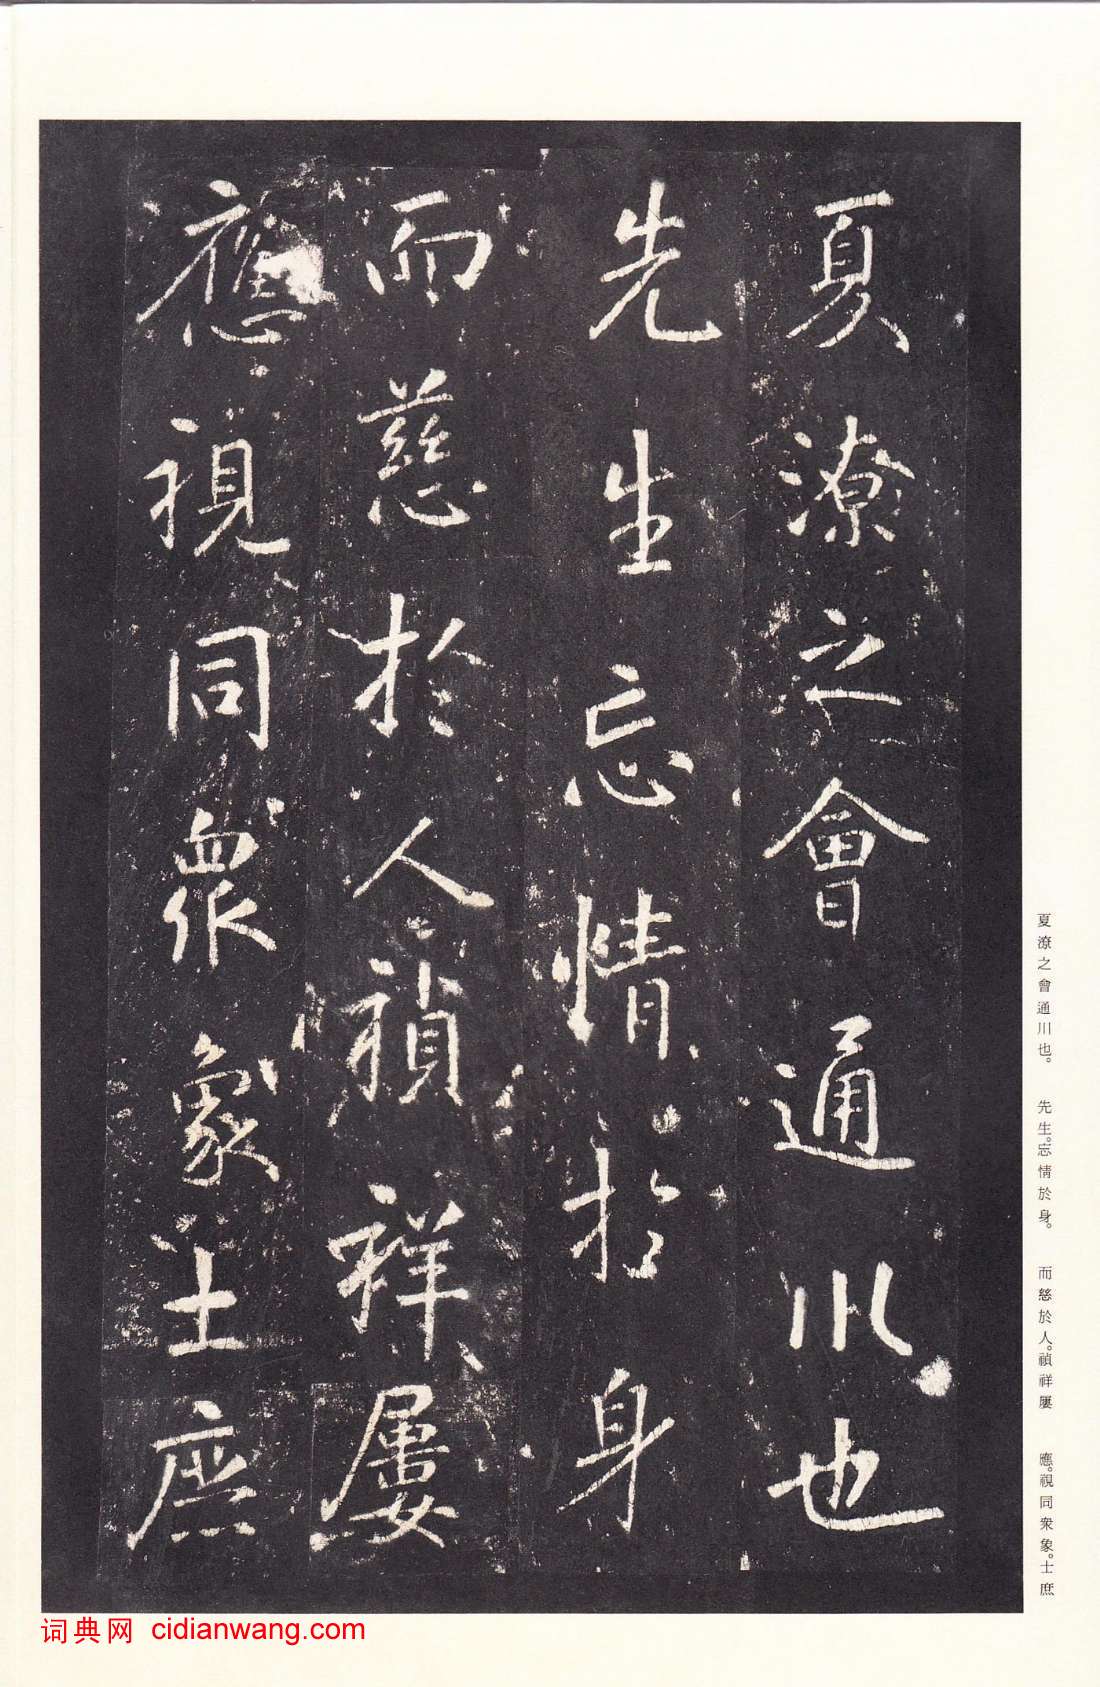 夏潦之會通川也
先生忘情於身
而慈於人禎祥屢
應視同眾象士庶
夏潦之會通川也。 先生。忘情於身。 而慈於人。禎祥屢 應。視同眾象。士庶
词典网 cidianwang.com